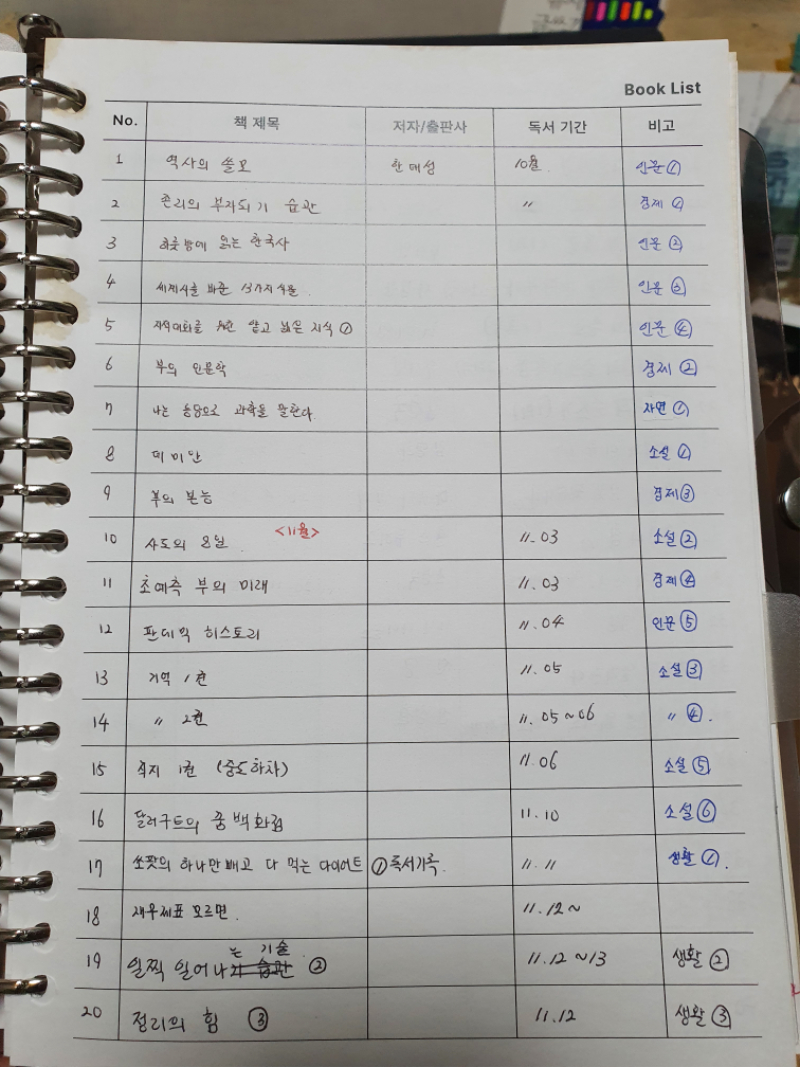 Book List
No. 책 제목 저자/출판사 독서 기간 비고
1 역사의 쓸모 한 대성 10월 인문 ①
2 존리의 부자되기 습관 〃 경제 ①
3 방에 읽는 한국사 인문 ②
4 세계사를 바꾼 13가지 식물 인문 ③
5 지적대화를 위한 얕고 넓은 지식 ① 인문 ④
6 부의 인문학 경제 ②
7 나는 농담으로 과학을 말한다. 자연 ①
8 데미안 소설 ①
9 부의 본능 경제 ③
10 사도의 8일 <11월> 11.03 소설 ②
11 초예측 부의 미래 11.03 경제 ④
12 판데믹 히스토리 11.04 인문 ⑤
13 기억 1권 11.05 소설 ③
14 〃 2권 11.05~06 〃 ④.
15 직지 1권 (중도하차) 11.06 소설 ⑤
16 달러구트의 꿈 백화점 11.10 소설 ⑥
17 쏘팟의 하나만 빼고 다 먹는 다이어트 ① 독서기록. 11.11 생활 ①.
18 재무제표 모르면 11.12~
19 일찍 일어나는 기술 ② 11.12~13 생활 ②
20 정리의 힘 ③ 11.12 생활 ③